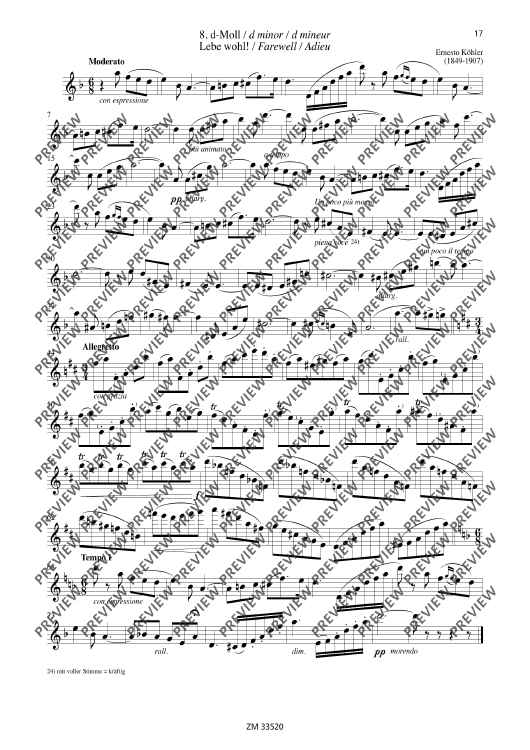 8. d-Moll / d minor / d mineur
17
Lebe wohl! / Farewell / Adieu
Ernesto Köhler
(1849-1907)
Moderato
con espressione
7
più animato
a tempo
15
pp
Un poco più mosso
piena voce 24)
un poco il tempo
rall.
Allegretto
con grazia
tr tr tr tr tr tr tr
Tempo I
con espressione
rall.
dim.
pp morendo
24) mit voller Stimme = kräftig
ZM 33520
PREVIEW